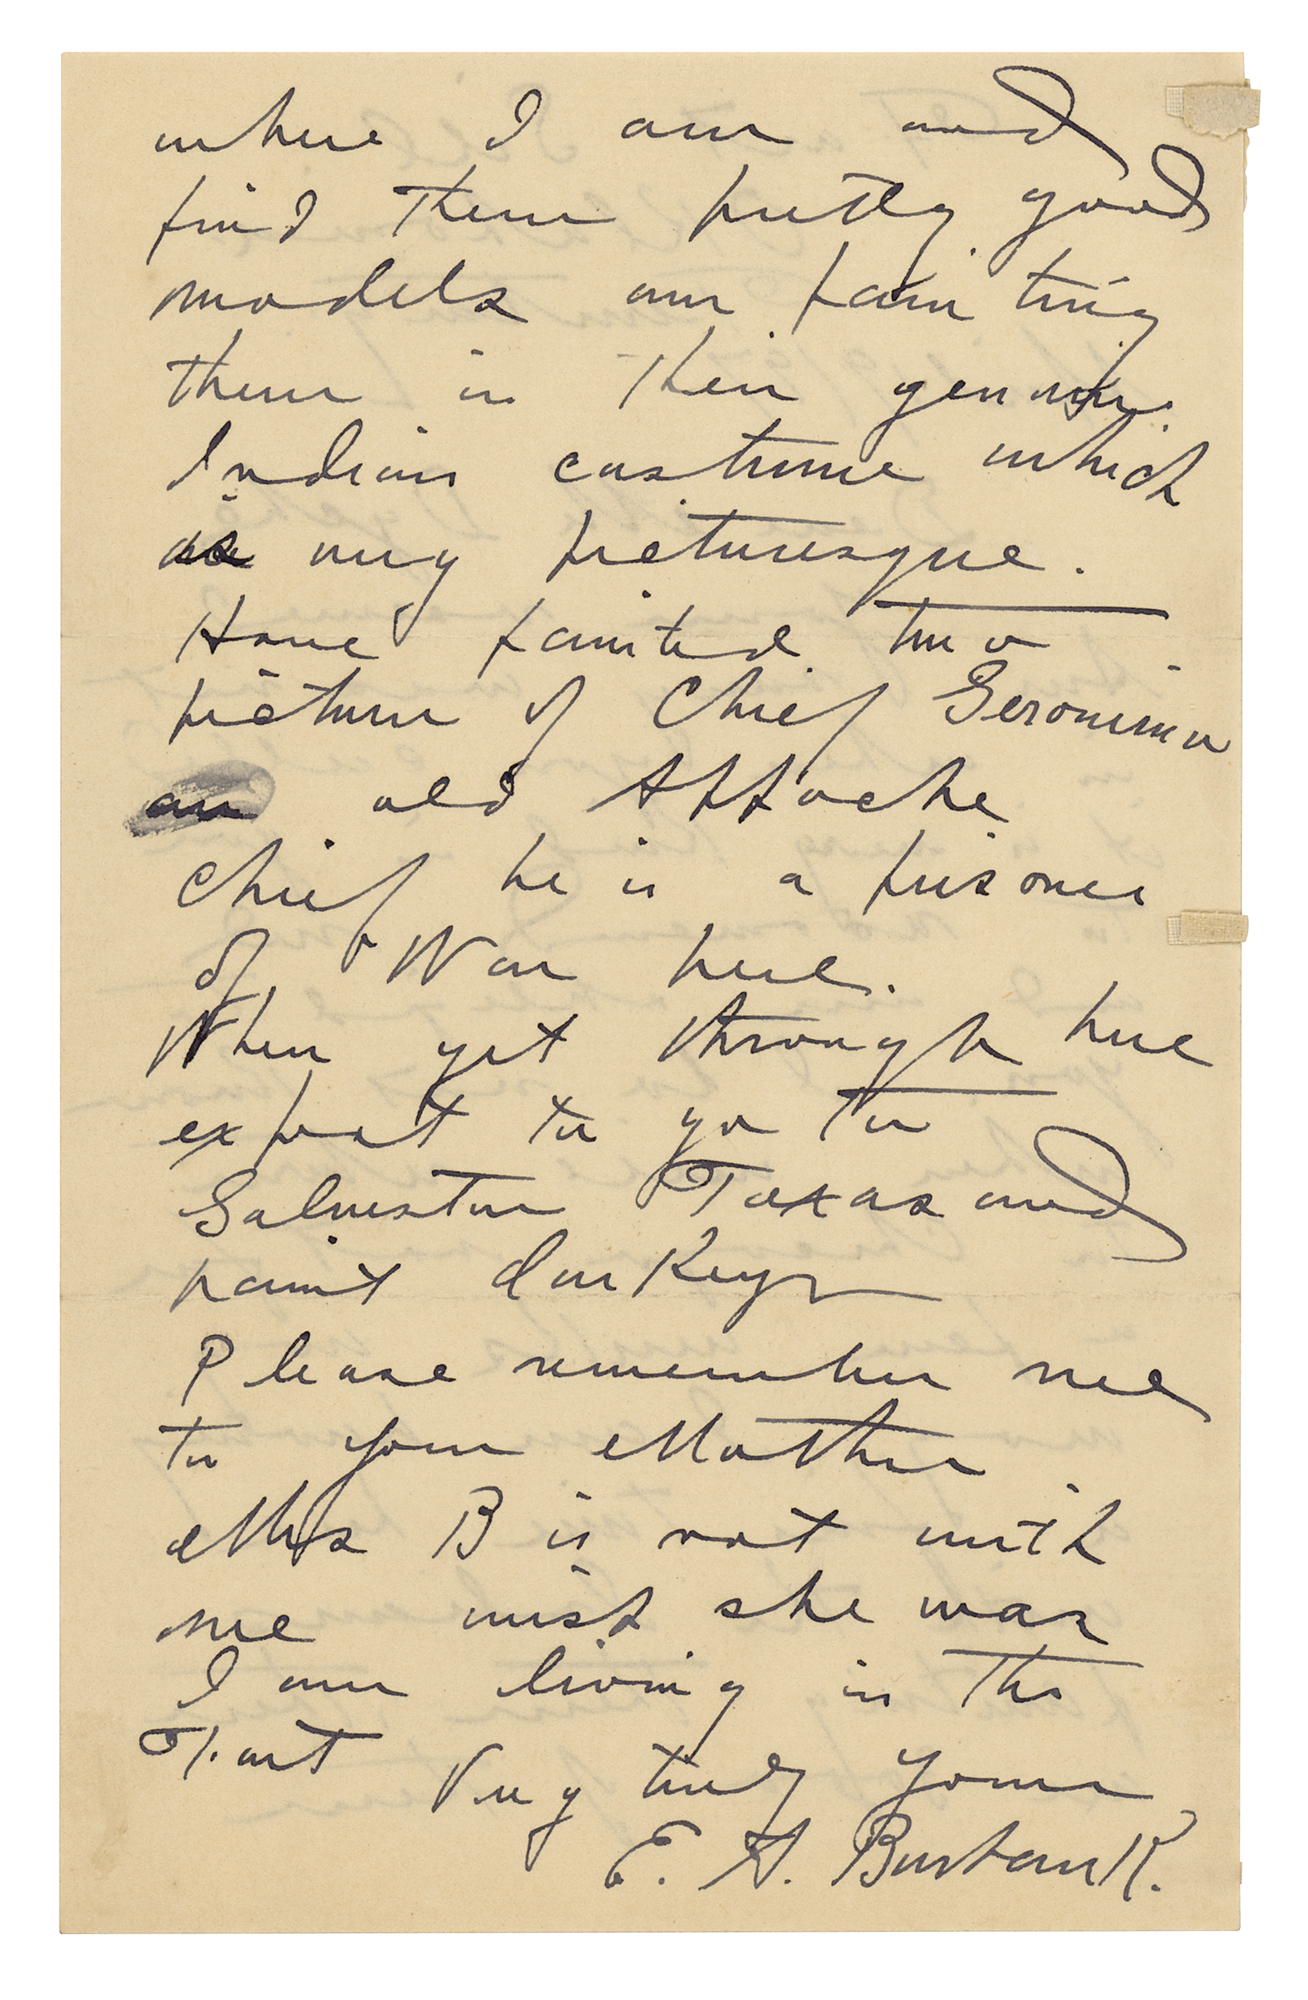 where I am and
find them pretty good
models am painting
them in their genuine
Indian costume which
is very picturesque.
Have painted two
picture of Chief Geronimo
an old Appache
Chief he is a prisoner
of War here.
When get through here
expect to go to
Galveston Texas and
paint darkeys
Please remember me
to your Mother
Mrs B is not with
me wish she was
I am living in the
Fort Very truly yours
E. A. Burbank.